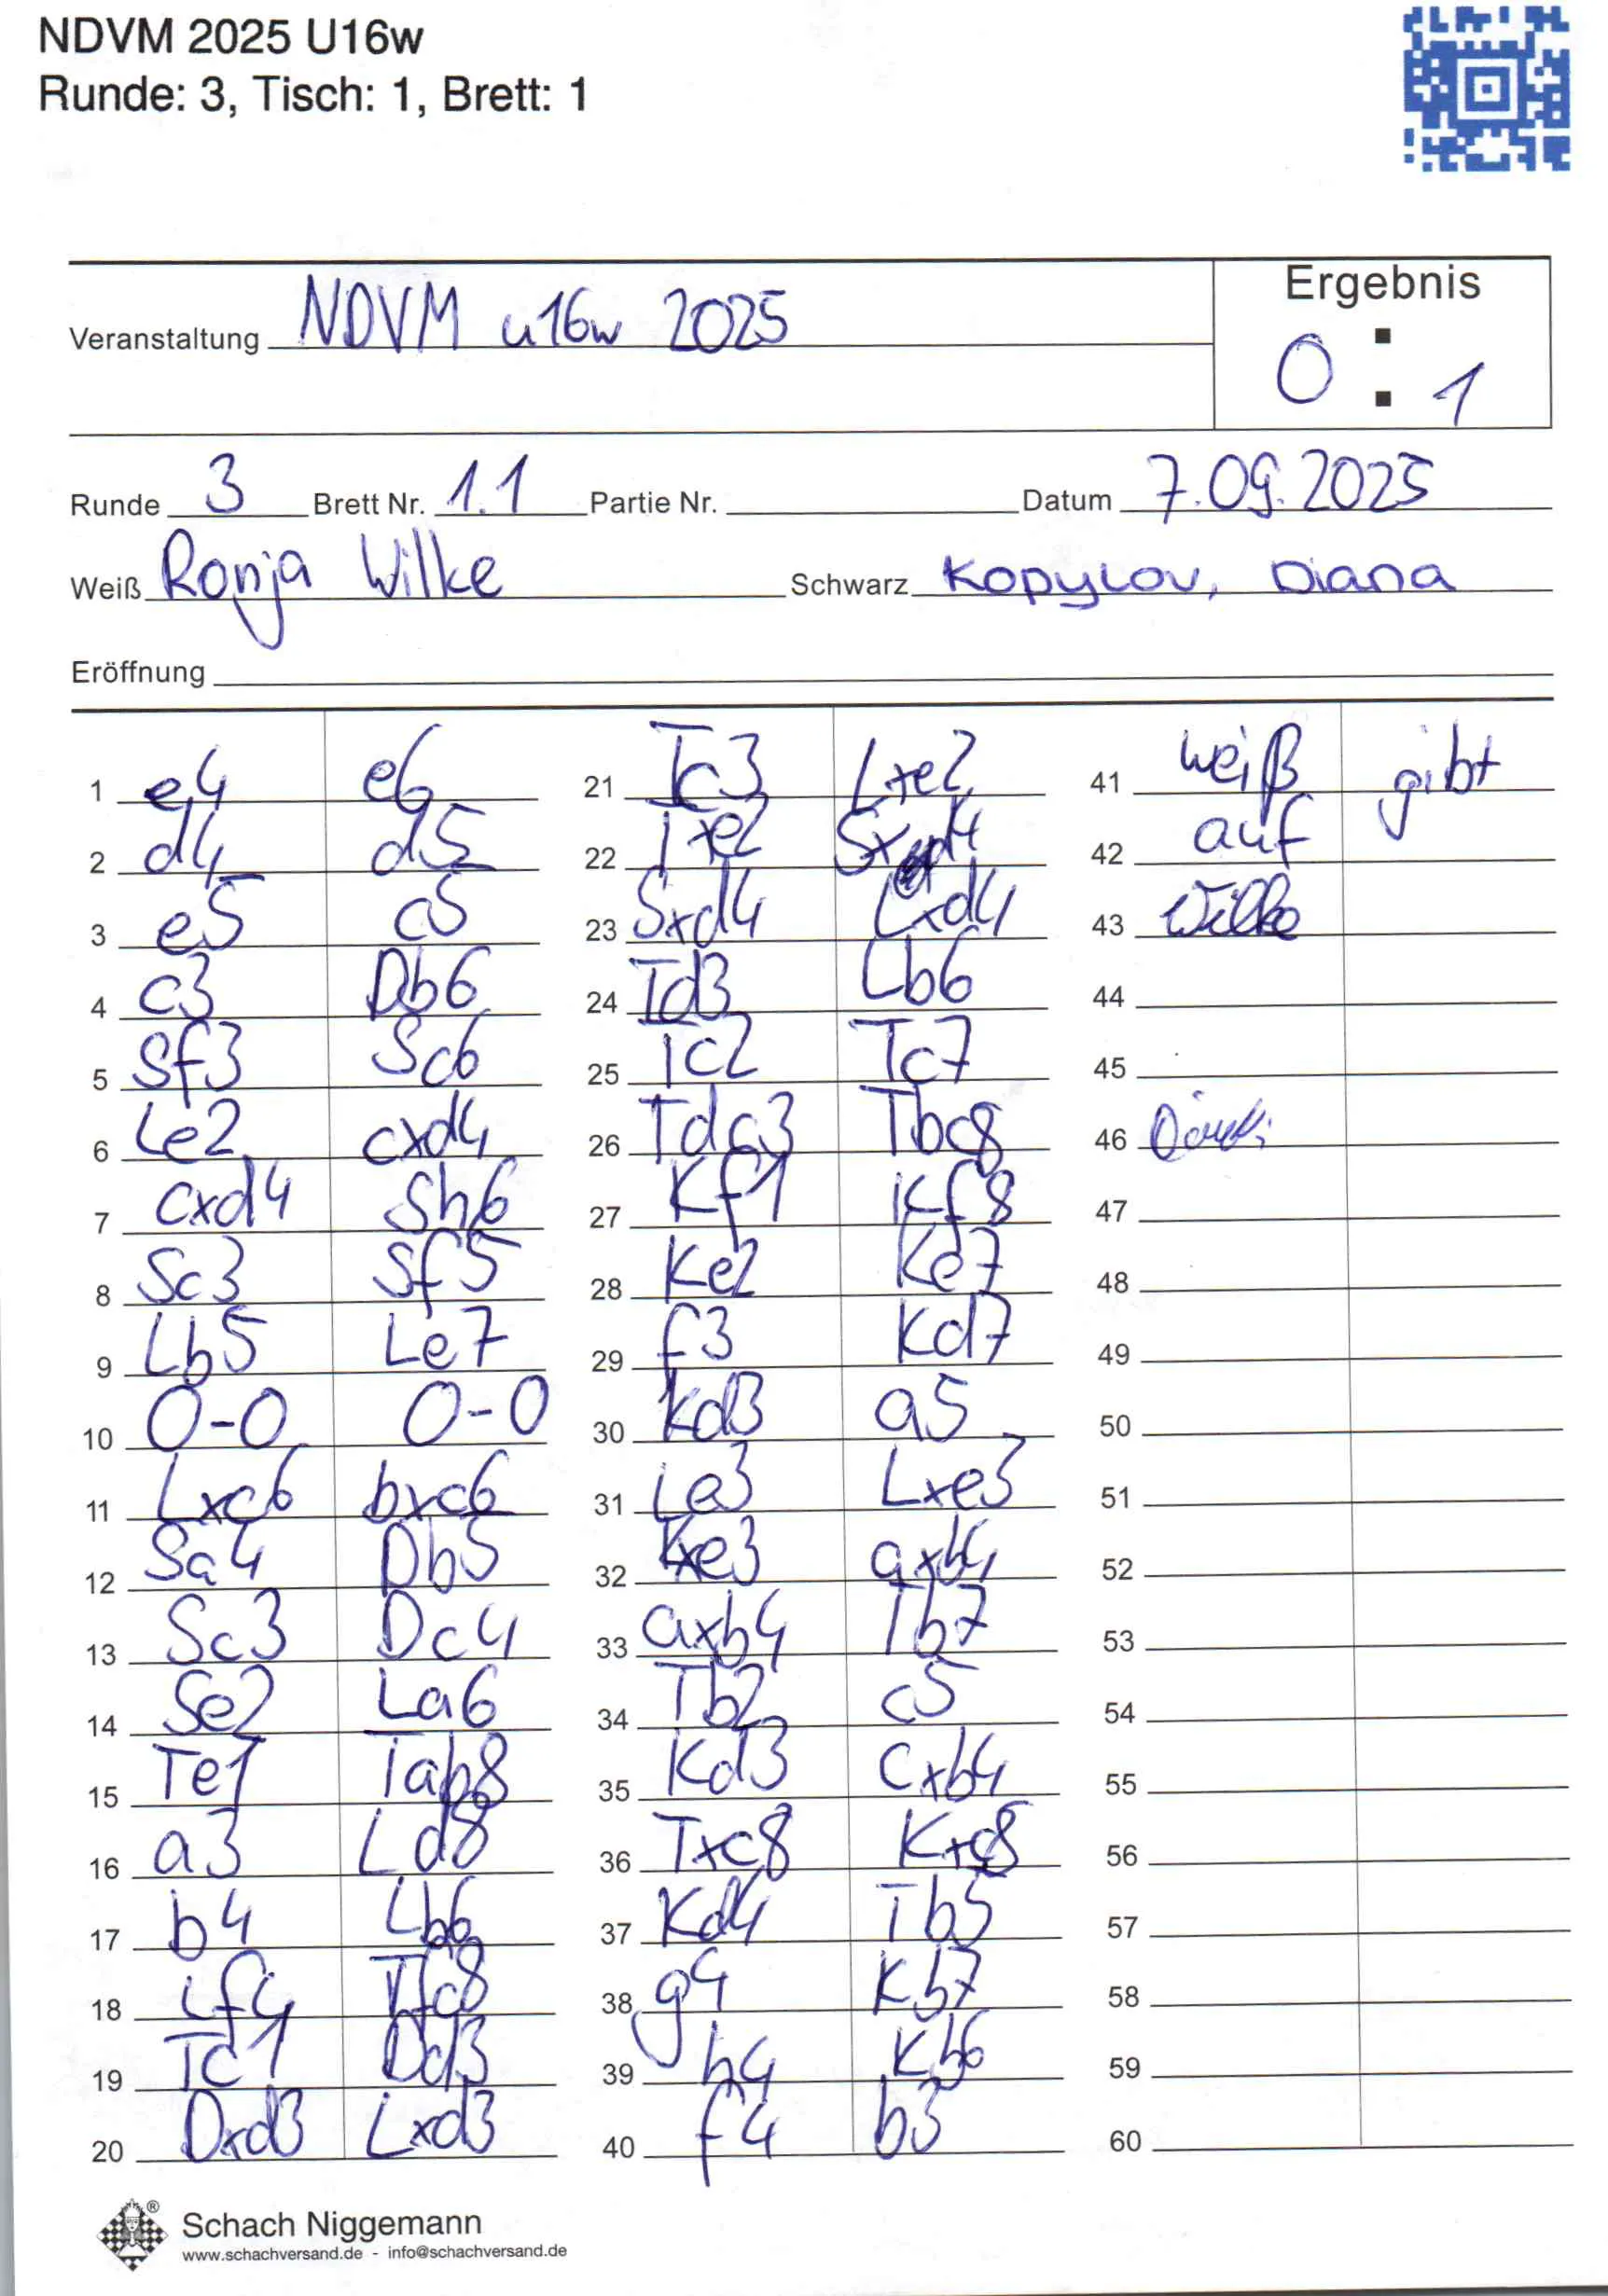 NDVM 2025 U16w
Runde: 3, Tisch: 1, Brett: 1
Ergebnis
Veranstaltung NDVM u16w 2025
0 : 1
Runde 3 Brett Nr. 1.1 Partie Nr. Datum 7.09.2025
Weiß Ronja Wilke Schwarz Kopylov, Diana
Eröffnung
1 e4 e6
2 d4 d5
3 e5 c5
4 c3 Db6
5 Sf3 Sc6
6 Le2 cxd4
7 cxd4 Sh6
8 Sc3 Sf5
9 Lb5 Le7
10 0-0 0-0
11 Lxc6 bxc6
12 Sa4 Db5
13 Sc3 Dc4
14 Se2 La6
15 Te1 Tab8
16 a3 Ld8
17 b4 Lb6
18 Lf4 Tfc8
19 Tc1 Dd3
20 Dxd3 Lxd3
21 Tc3 Lxe2
22 Txe2 Sxd4
23 Sxd4 Lxd4
24 Td3 Lb6
25 Tc2 Tc7
26 Tdc3 Tbc8
27 Kf1 Kf8
28 Ke2 Ke7
29 f3 Kd7
30 Kd3 a5
31 Le3 Lxe3
32 Kxe3 axb4
33 axb4 Tb7
34 Tb2 c5
35 Kd3 cxb4
36 Txc8 Kxc8
37 Kd4 Tb5
38 g4 Kb7
39 h4 Kb6
40 f4 b3
41 weiß gibt
42 auf
43 Wilke
44
45
46
47
48
49
50
51
52
53
54
55
56
57
58
59
60
Schach Niggemann
www.schachversand.de - info@schachversand.de